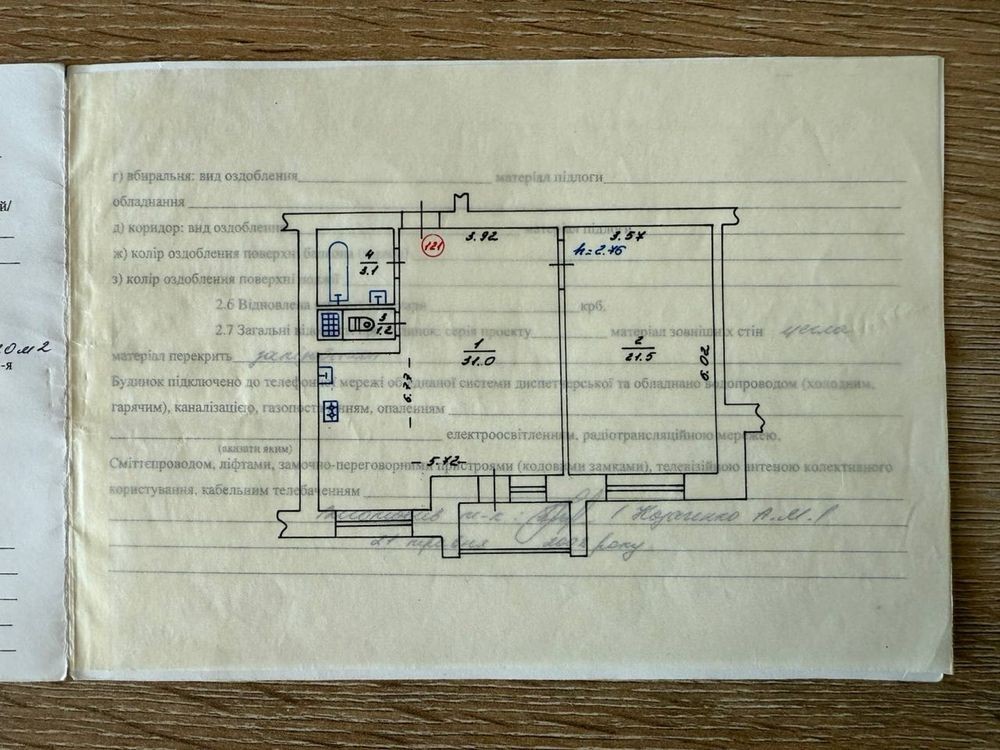 й/
20 м2
-я
г) вбиральня: вид оздоблення матеріал підлоги
обладнання
д) коридор: вид оздоблення підлоги
ж) колір оздоблення поверхні
з) колір оздоблення поверхні
2.6 Відновлена крб.
2.7 Загальні будинок: серія проекту матеріал зовнішніх стін цегла
матеріал перекрить
Будинок підключено до телефонної мережі об'єднаної системи диспетчерської та обладнано водопроводом (холодним,
гарячим), каналізацією, газопостачанням, опаленням
електроосвітленням, радіотрансляційною мережею,
(вказати яким)
Сміттєпроводом, ліфтами, замочно-переговорними пристроями (кодовими замками), телевізійною антеною колективного
користування, кабельним телебаченням
2002 року
121
3.92
3.57
h=2.75
4
3.1
3
1.2
1
31.0
2
21.5
6.02
6.77
5.72